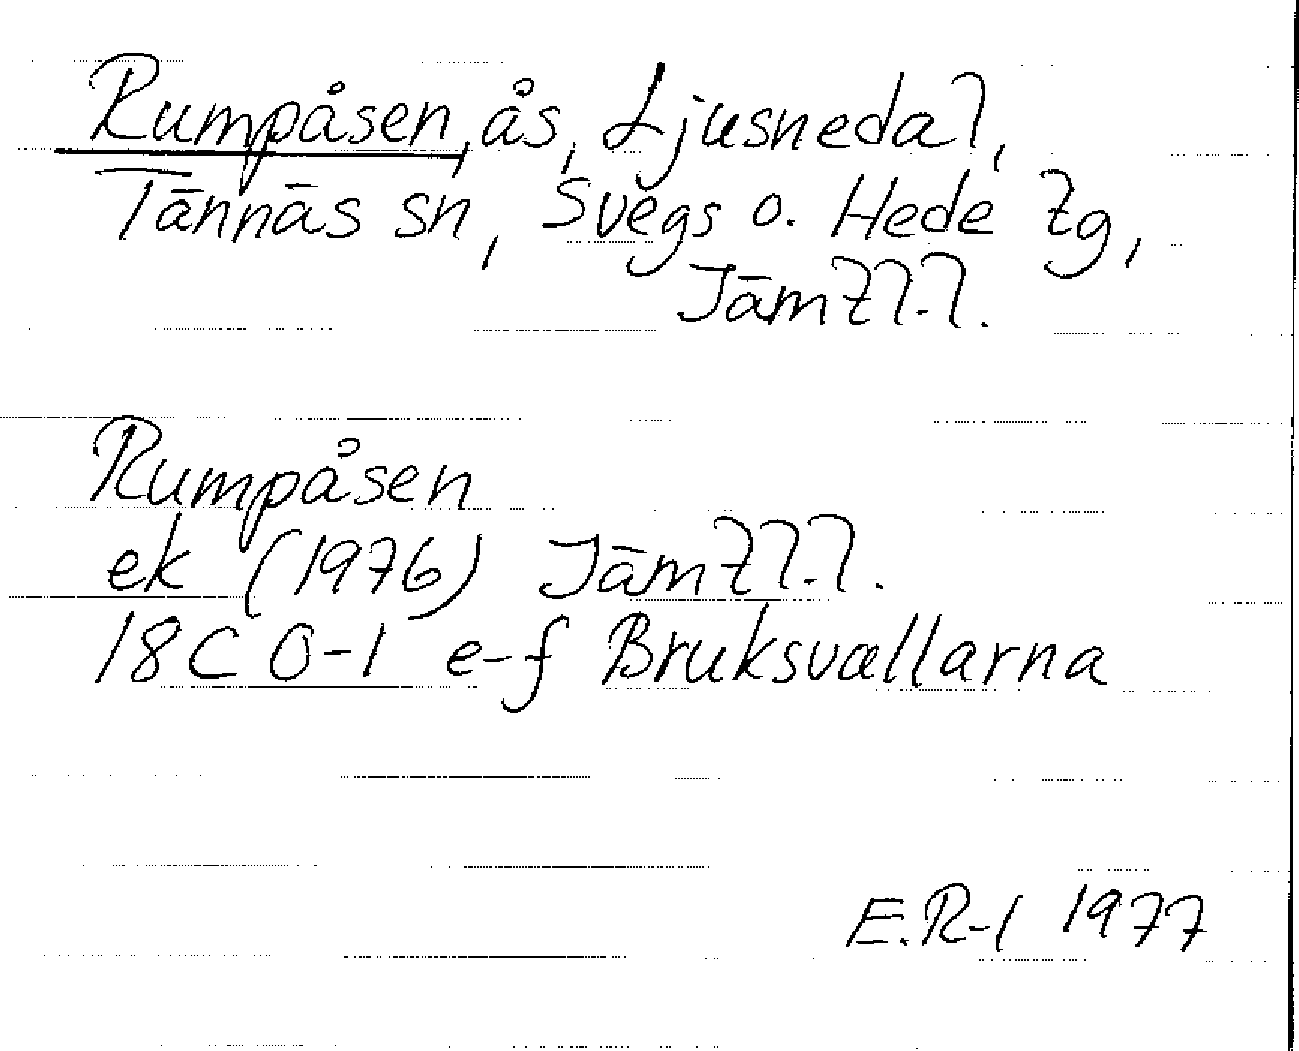 Rumpåsen, ås, Ljusnedal,
Tännäs sn, Svegs o. Hede tg,
Jämtl.l.
Rumpåsen
ek (1976) Jämtl.l.
18C 0-1 e-f Bruksvallarna
E.R-l 1977